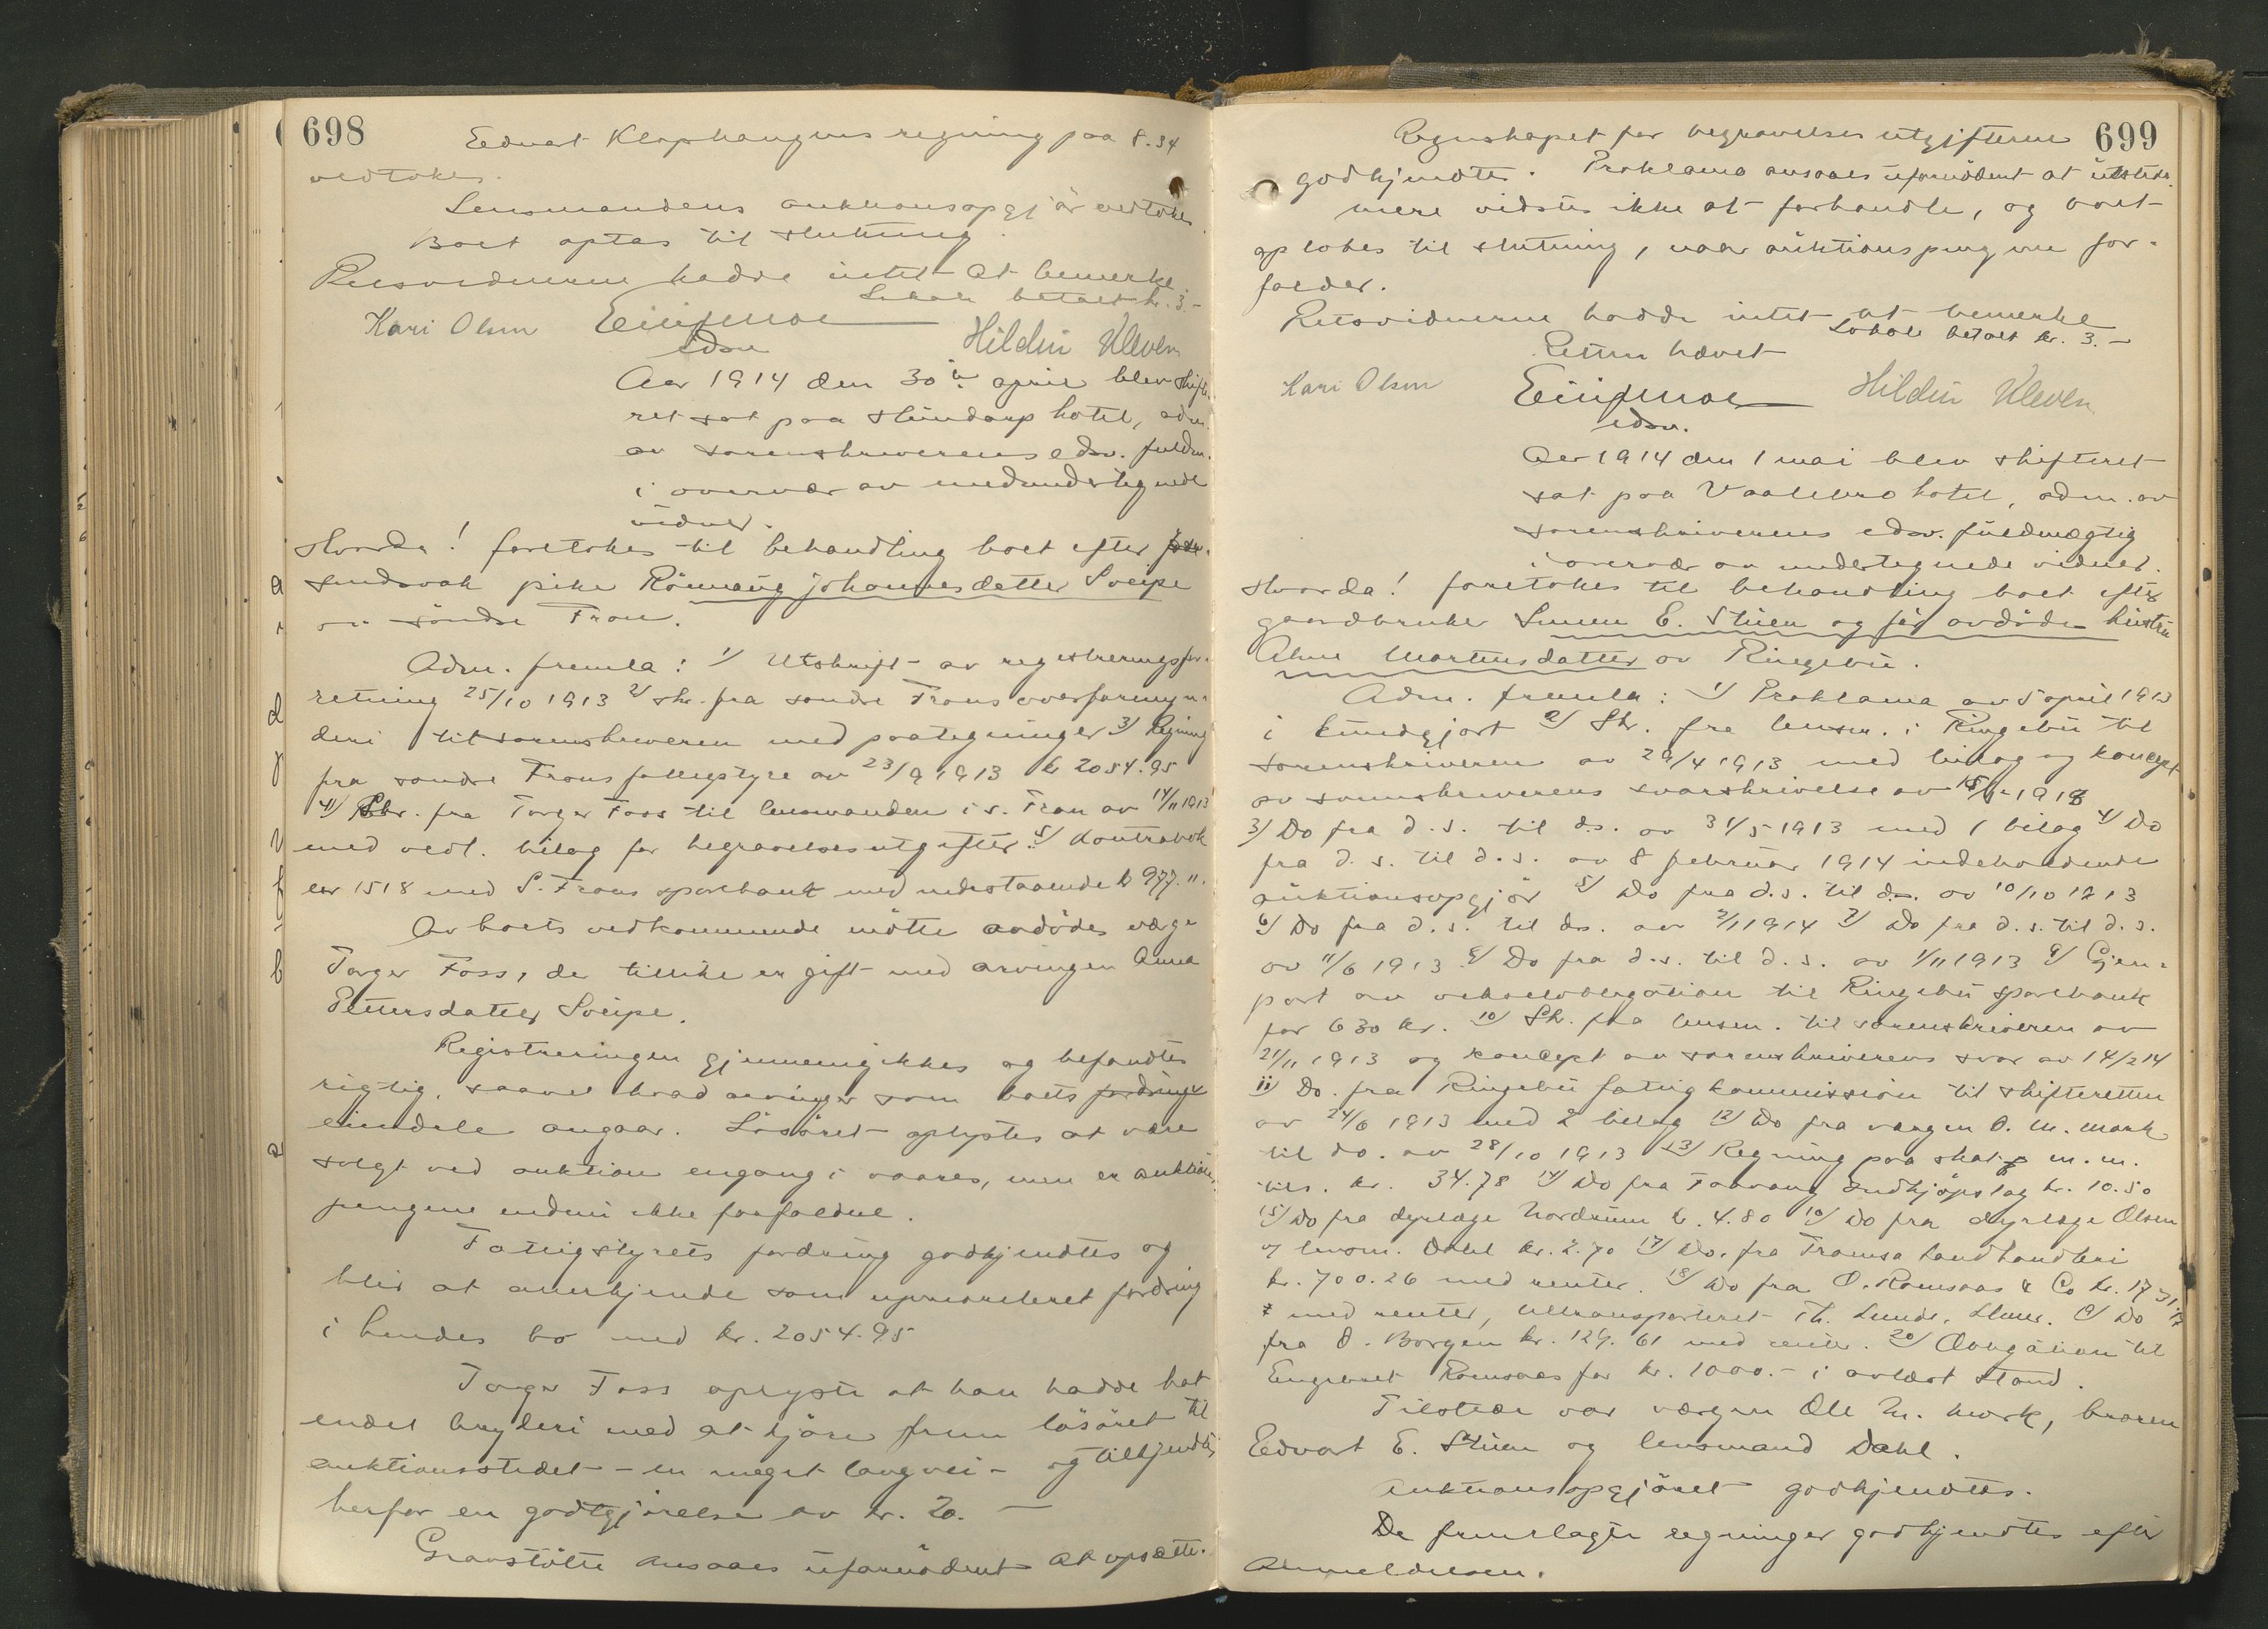 698
Edvat Klophaugens regning paa 8.34
vedtokes.
Lensmandens auktionsopgjør vedtokes
Boet optas til slutning.
Retsvidnerne hadde intet at bemerke
Lokale betalt kr. 3.-
Kari Olsen Hildur Kleven
edsv
Aar 1914 den 30te april blev skifte
ret sat paa Hundorp hotel, adm.
av sorenskriverens edsv. fuldm.
i overvær av medundertegnede
vidner.
Hvorda! foretokes til behandling boet efter
sindsvak pike Rønnaug Johannesdatter Sveipe
av søndre Fron.
Adm. fremla: 1/ Utskrift av registreringsfor-
retning 25/10 1913 2/ skr. fra søndre Frons overformyn-
deri til sorenskriveren med paategninger 3/ Regning
fra søndre Frons fattigstyre av 23/9 1913 kr 2054.95
4/ Skr. fra Torger Foss til lensmanden i s. Fron av 14/11 1913
med vedl. bilag for begravelsesutgifter. 5/ Kontrabok
1518 med S. Frons sparebank med indestaaende kr 977.11.
Av boets vedkommende møtte avdødes værge
Torger Foss, der tillike er gift med arvingen Anna
Pettersdatter Sveipe.
Registreringen gjennemgikkes og befandtes
rigtig, saavel hvad arvinger som boets fordringer
eiendele angaar. Løsøret oplystes at være
solgt ved auktion engang i vaares, men er auktions
pengene endnu ikke forfaldne.
Fattigstyrets fordring godkjendtes og
blir at anerkjende som uprioriteret fordring
i hendes bo med kr. 2054.95
Torger Foss oplyste at han hadde hat
endel bryderi med at kjøre frem løsøret til
auktionsstedet - en meget lang vei - og tilkjendtes
herfor en godtgjørelse av kr. 20. -
Gravstøtte ansaaes ufornødent at opsætte.
699
Regnskapet for begravelses utgifterne
godkjendtes. Proklama ansaaes ufornødent at utstede.
mere vidstes ikke at forhandle, og boet
optokes til slutning, naar auktionspengene for-
falder.
Retsvidnerne hadde intet at bemerke
Lokale betalt kr. 3.-
Retten hævet
Kari Olsen Hildur Kleven
edsv.
Aar 1914 den 1 mai blev skifteret
sat paa Vaalebro hotel, adm. av
sorenskriverens edsv. fuldmægtig
i overvær av undertegnede vidner.
Hvorda! foretokes til behandling boet efter
gaardbruker Simen E. Stuen og før avdøde hustru
Ahne Mortensdatter av Ringebu.
Adm. fremla: 1/ Proklama av 5 april 1913
i kundgjort 2/ Skr. fra lensm. i Ringebu til
sorenskriveren av 29/4 1913 med bilag og koncept
av sorenskriverens svarskrivelse av
3/ Do fra d.s. til d.s. av 31/5 1913 med 1 bilag 4/ Do
fra d.s. til d.s. av 8 februar 1914 indeholdende
auktionsopgjør 5/ Do fra d.s. til d.s. av 10/10 1913
6/ Do fra d.s. til d.s. av 2/1 1914 7/ Do fra d.s. til d.s.
av 11/6 1913 8/ Do fra d.s. til d.s. av 1/11 1913 9/ Gjen-
part av vekselobligation til Ringebu sparebank
for 630 kr. 10/ Skr. fra lensm. til sorenskriveren av
21/11 1913 og koncept av sorenskriverens svar av 14/2 14
11/ Do. fra Ringebu fattigkommission til skifteretten
av 24/6 1913 med 2 bilag 12/ Do fra værgen O. M. Mork
til do. av 28/10 1913 13/ Regning paa skat m.m.
tils. kr. 34.78 14/ Do fra Faavang Indkjøpslag kr. 10.50
15/ Do fra dyrlæge Nordrum kr. 4.80 16/ Do fra dyrlæge Olsen
og lensm. Dahl kr. 2.70 17/ Do. fra Tromsa Landhandleri
kr. 700.26 med renter. 18/ Do fra O. Romsaas & Co kr. 1731.17
med renter, tiltransporteret Th. Lunde, Lhmr. 19/ Do
fra O. Borgen kr. 129.61 med renter. 20/ Obligation til
Engebret Romsaas for kr. 1000.- i avlæst stand.
Tilstede var værgen Ole M. Mork, broren
Edvart E. Stuen og lensmand Dahl.
Auktionsopgjøret godkjendtes.
De fremlagte regninger godkjendtes efter
Anmeldelsen.